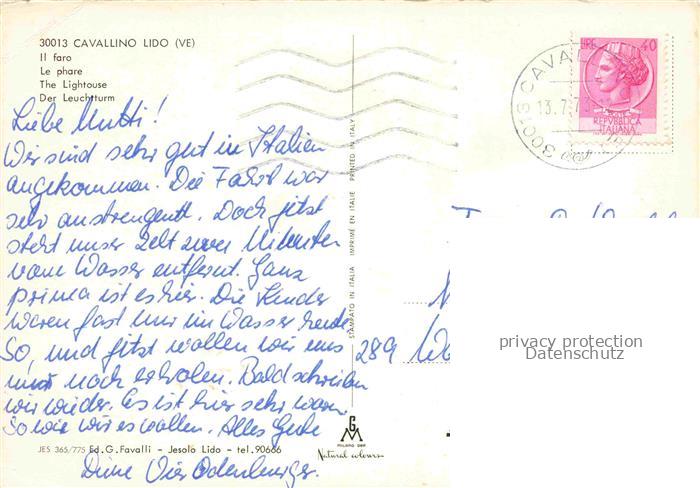 30013 CAVALLINO LIDO (VE)
Il faro
Le phare
The Lightouse
Der Leuchtturm
Liebe Mutti!
Wir sind sehr gut in Italien
angekommen. Die Fahrt war
sehr anstrengend. Doch jetzt
steht unser Zelt zwei Minuten
vom Wasser entfernt. Ganz
prima ist es hier. Die Kinder
waren fast nur im Wasser heute.
So, und jetzt wollen wir uns
noch erholen. Bald schreiben
wir wieder. Es ist hier sehr warm.
So wie wir es wollen. Alles Gute
Deine Vier Odenburger.
JES 365/775 Ed. G. Favalli - Jesolo Lido - tel. 90666
STAMPATO IN ITALIA IMPRIMÉ EN ITALIE PRINTED IN ITALY
GM
MILANO
Natural colours
30013 CAVAL
13.7.73
LIRE 40
POSTE
REPVBBLICA
ITALIANA
289
privacy protection
Datenschutz